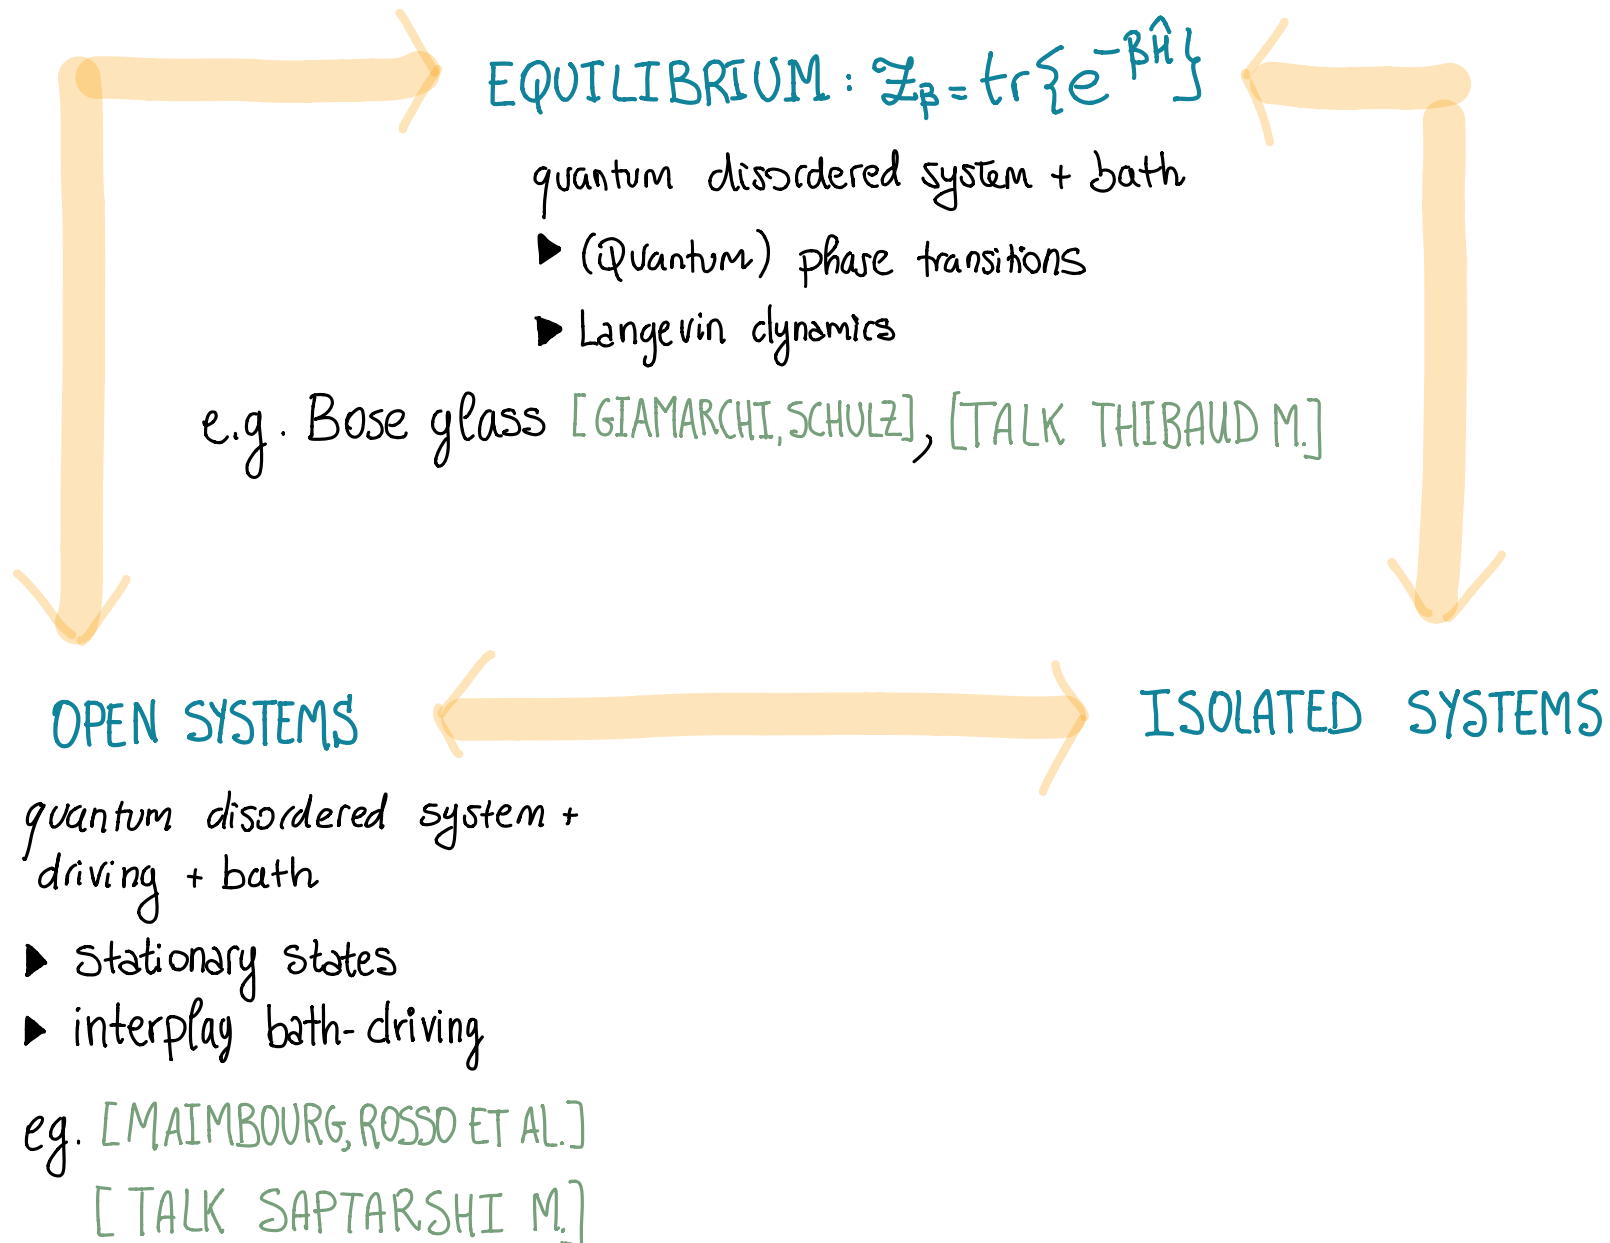 EQUILIBRIUM: Z_β = tr{e^{-βĤ}}
quantum disordered system + bath
▶ (Quantum) phase transitions
▶ Langevin dynamics
e.g. Bose glass [GIAMARCHI, SCHULZ], [TALK THIBAUD M.]
OPEN SYSTEMS
ISOLATED SYSTEMS
quantum disordered system +
driving + bath
▶ stationary states
▶ interplay bath-driving
eg. [MAIMBOURG, ROSSO ET AL.]
[TALK SAPTARSHI M.]